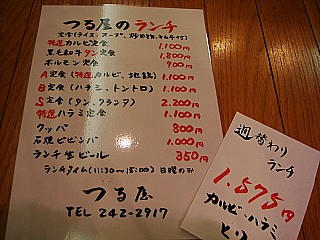 つる屋のランチ
定食(ライス、スープ、炒め物、キムチ付)
特選カルビ定食 1,100円
黒毛和牛タン定食 1,300円
ホルモン定食 900円
A定食(特選カルビ、地鶏) 1,100円
B定食(ハラミ、トントロ) 1,100円
S定食(タン、クラシタ) 2,200円
特選ハラミ定食 1,100円
クッパ 800円
石焼ビビンバ 1,000円
ランチ生ビール 350円
ランチタイム(11:30~15:00) 日曜のみ
つる屋
TEL 242-2917
週替わり
ランチ
1,575円
カルビ・ハラミ
とり